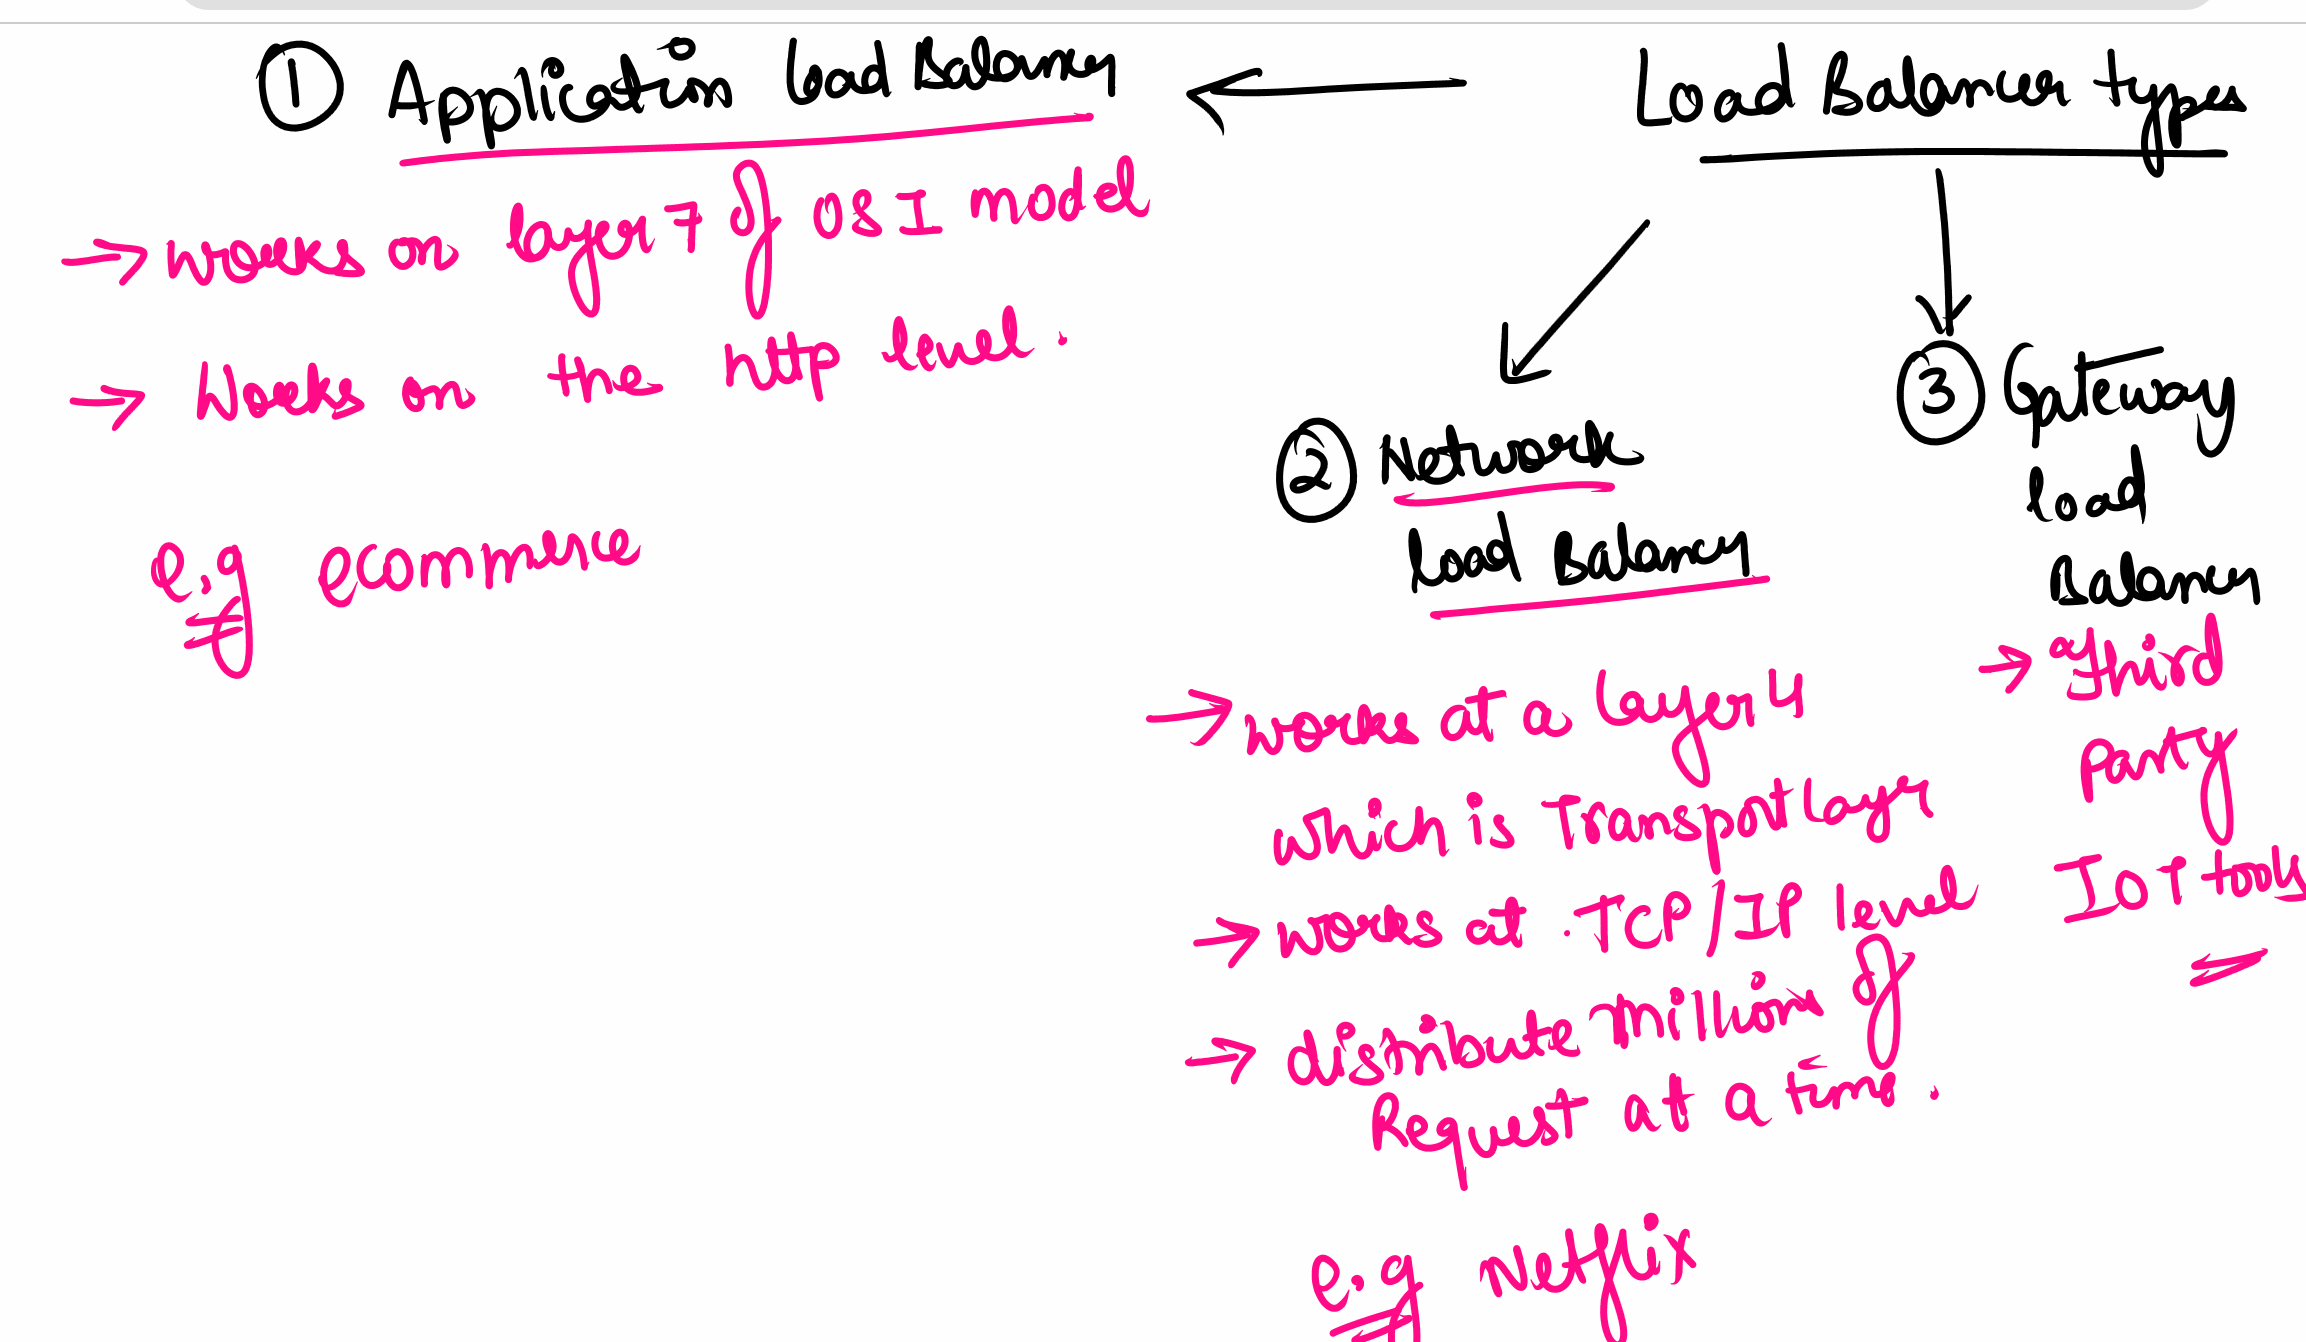 Load Balancer types
① Application Load Balancer
→ works on layer 7 of OSI model
→ Works on the http level.
e.g ecommerce
② Network
Load Balancer
→ works at a layer 4
which is Transport layer
→ works at TCP/IP level
→ distribute millions of
Request at a time.
e.g Netflix
③ Gateway
Load
Balancer
→ Third
party
IOT tools